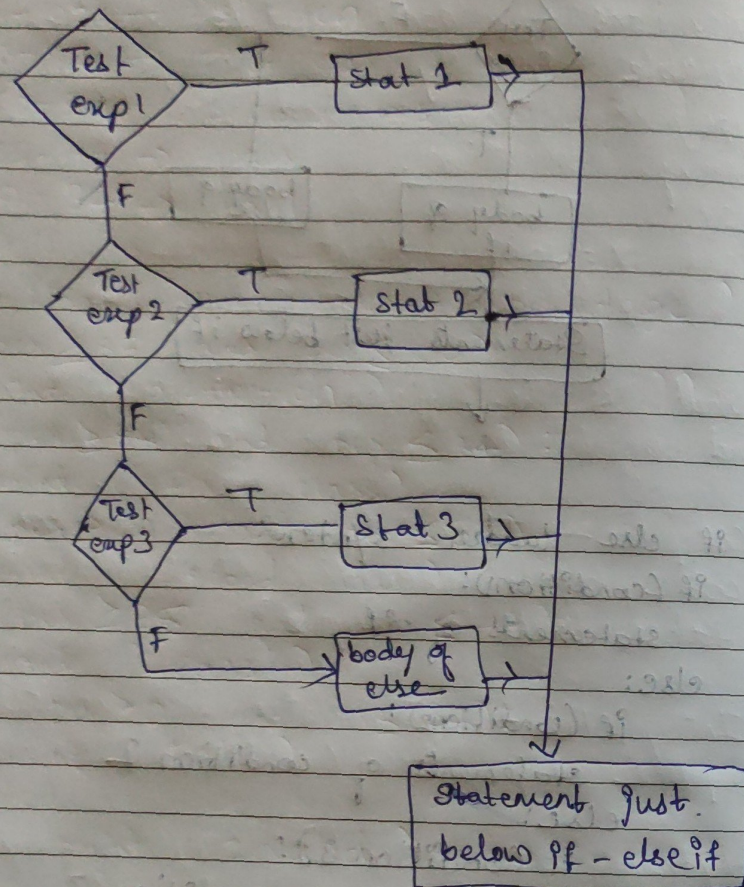 Test
exp1
T
Stat 1
F
Test
exp2
T
Stat 2
F
Test
exp3
T
Stat 3
F
body of
else
Statement just
below if - else if